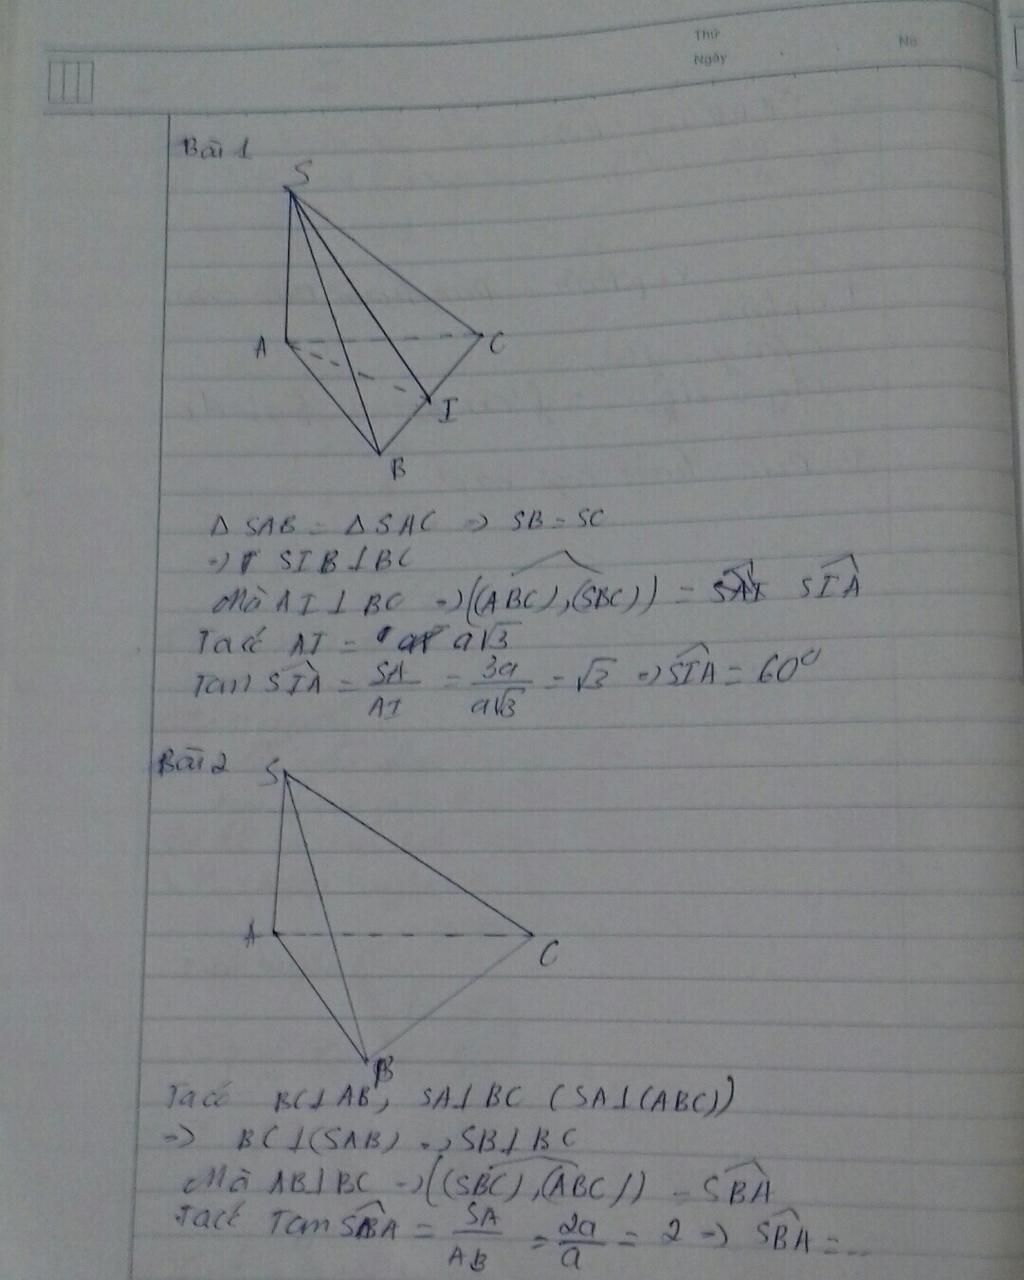 Thứ
Ngày
No
Bài 1
S
A
C
I
B
Δ SAB = Δ SAC => SB = SC
=> SIB⊥BC
Mà AI ⊥ BC => ((ABC),(SBC)) = SIA
Ta có AI = a√3
Tan SIA = SA/AI = 3a/a√3 = √3 => SIA = 60°
Bài 2
S
A
C
B
Ta có BC⊥AB, SA⊥BC (SA⊥(ABC))
=> BC⊥(SAB) => SB⊥BC
Mà AB⊥BC => ((SBC),(ABC)) = SBA
Ta có Tan SBA = SA/AB = 2a/a = 2 => SBA = ...